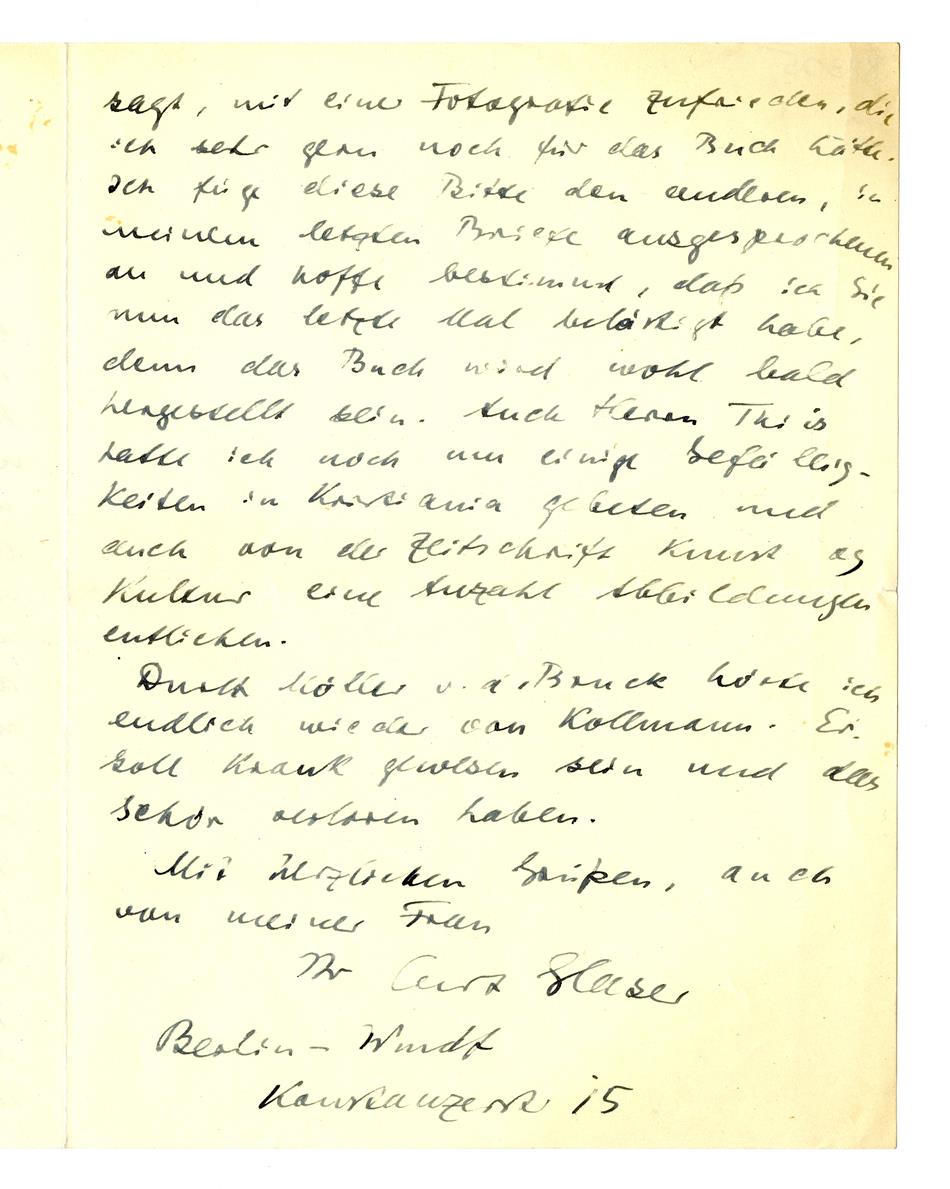 sagt, mit einer Fotografie zufrieden, die
ich sehr gern noch für das Buch hätte.
Ich füge diese Bitte den anderen, in
meinem letzten Briefe ausgesprochenen
an und hoffe bestimmt, daß ich Sie
nun das letzte Mal belästigt habe,
denn das Buch wird wohl bald
hergestellt sein. Auch Herrn Thiis
hatte ich noch um einige Gefällig-
keiten in Kristiania gebeten und
auch von der Zeitschrift Kunst og
Kultur eine Anzahl Abbildungen
entliehen.
Durch Möller v. d. Bruck hörte ich
endlich wieder von Kollmann. Er
soll krank gewesen sein und das
verloren haben.
Mit herzlichen Grüßen, auch
von meiner Frau
Ihr Curt Glaser
Berlin - Wmdf
Konstanzerstr 15